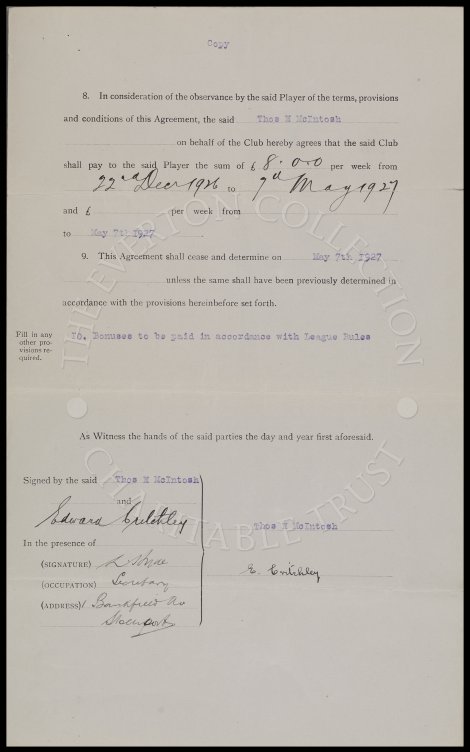 Copy
8. In consideration of the observance by the said Player of the terms, provisions
and conditions of this Agreement, the said Thos H McIntosh
on behalf of the Club hereby agrees that the said Club
shall pay to the said Player the sum of £ 8. 0=0 per week from
22nd Decr 1926 to 7th May 1927
and £ per week from
to May 7th 1927
9. This Agreement shall cease and determine on May 7th 1927
unless the same shall have been previously determined in
accordance with the provisions hereinbefore set forth.
Fill in any
other pro-
visions re-
quired.
10. Bonuses to be paid in accordance with League Rules
As Witness the hands of the said parties the day and year first aforesaid.
Signed by the said Thos H McIntosh
and
Edward Critchley
In the presence of
(SIGNATURE)
(OCCUPATION) Secretary
(ADDRESS)
Stockport
Thos H McIntosh
E. Critchley
THE EVERTON COLLECTION
CHARITABLE TRUST